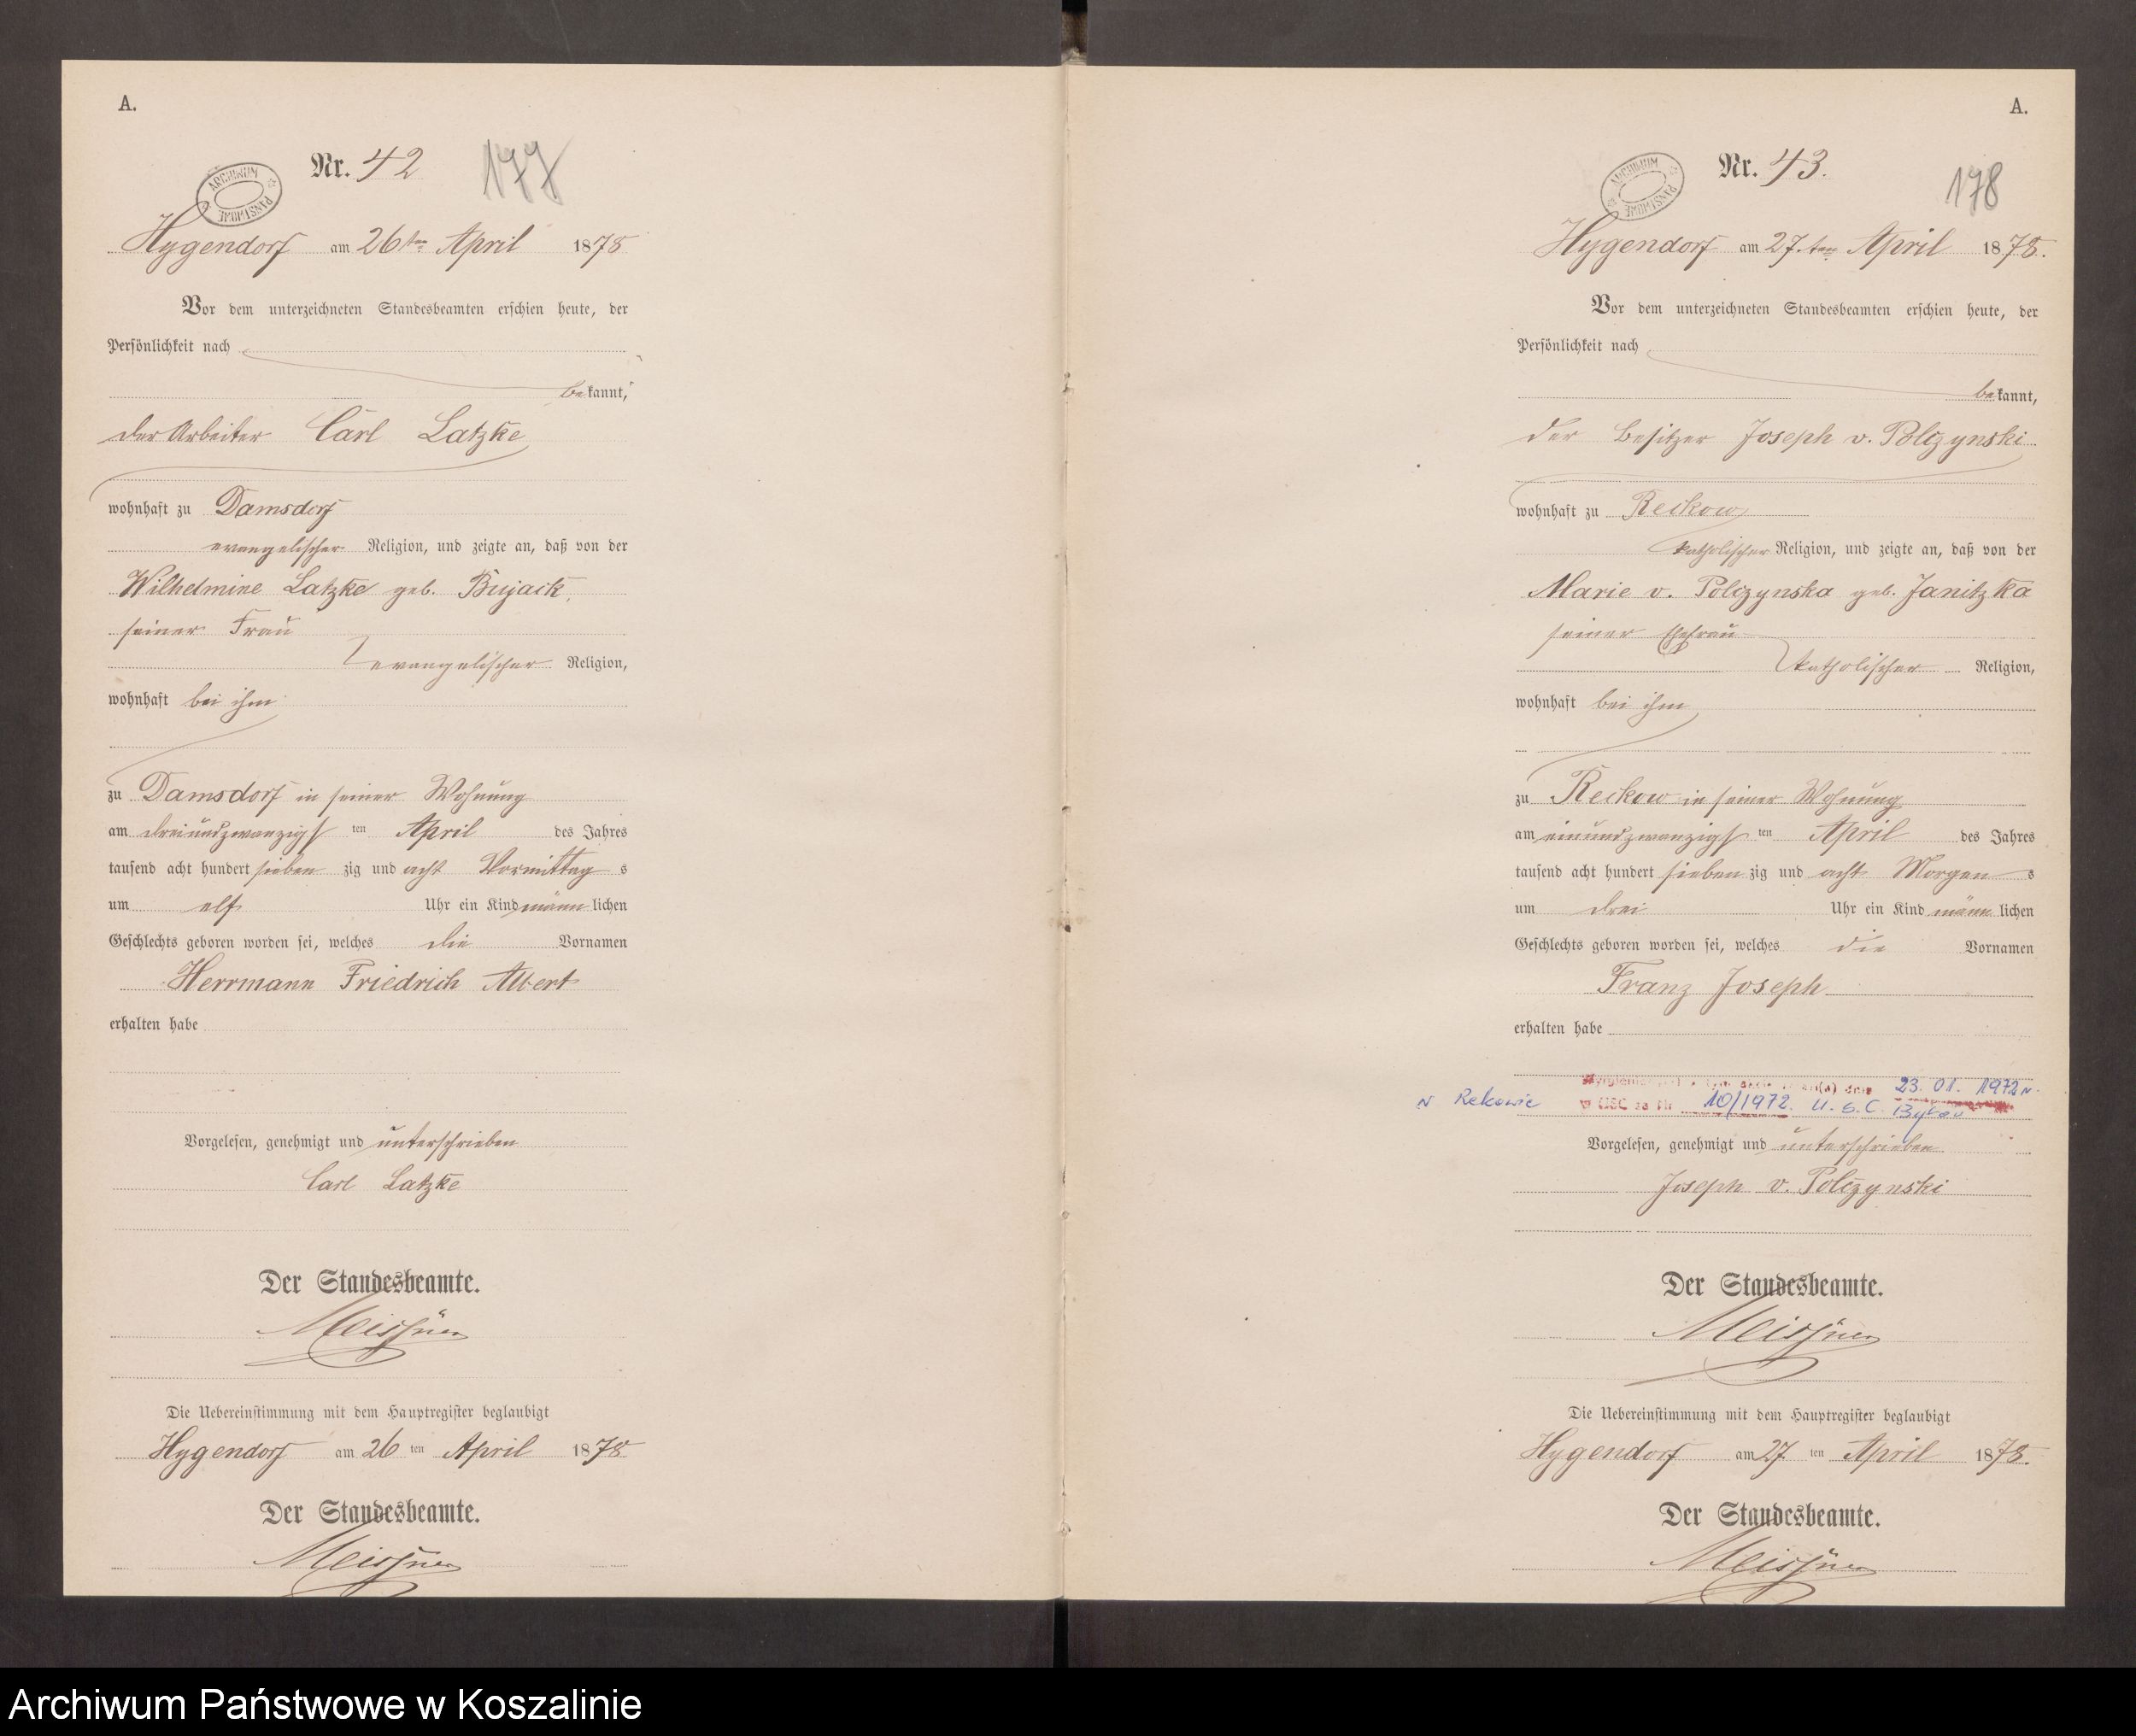 A.
Nr. 42
177
ARCHIWUM PAŃSTWOWE
Hygendorf am 26ten April 1878
Vor dem unterzeichneten Standesbeamten erschien heute, der
Persönlichkeit nach
bekannt,
der Arbeiter Carl Latzke
wohnhaft zu Damsdorf
evangelischer Religion, und zeigte an, daß von der
Wilhelmine Latzke geb. Bujack,
seiner Frau
evangelischer Religion,
wohnhaft bei ihm
zu Damsdorf in seiner Wohnung
am dreiundzwanzigsten April des Jahres
tausend acht hundert siebenzig und acht Vormittags
um elf Uhr ein Kind männlichen
Geschlechts geboren worden sei, welches die Vornamen
Herrmann Friedrich Albert
erhalten habe
Vorgelesen, genehmigt und unterschrieben
Carl Latzke
Der Standesbeamte.
Meissner
Die Uebereinstimmung mit dem Hauptregister beglaubigt
Hygendorf am 26ten April 1878
Der Standesbeamte.
Meissner
A.
Nr. 43.
178
ARCHIWUM PAŃSTWOWE
Hygendorf am 27.ten April 1878.
Vor dem unterzeichneten Standesbeamten erschien heute, der
Persönlichkeit nach
bekannt,
der Besitzer Joseph v. Polczynski
wohnhaft zu Reckow
katholischer Religion, und zeigte an, daß von der
Marie v. Polczynska geb. Janitzka
seiner Ehefrau
katholischer Religion,
wohnhaft bei ihm
zu Reckow in seiner Wohnung
am einundzwanzigsten April des Jahres
tausend acht hundert siebenzig und acht Morgens
um drei Uhr ein Kind männlichen
Geschlechts geboren worden sei, welches die Vornamen
Franz Joseph
erhalten habe
23. 01. 1972 r.
w Rekowie w USC za Nr 10/1972. U.S.C. Bytów
Vorgelesen, genehmigt und unterschrieben
Joseph v. Polczynski
Der Standesbeamte.
Meissner
Die Uebereinstimmung mit dem Hauptregister beglaubigt
Hygendorf am 27.ten April 1878.
Der Standesbeamte.
Meissner
Archiwum Państwowe w Koszalinie